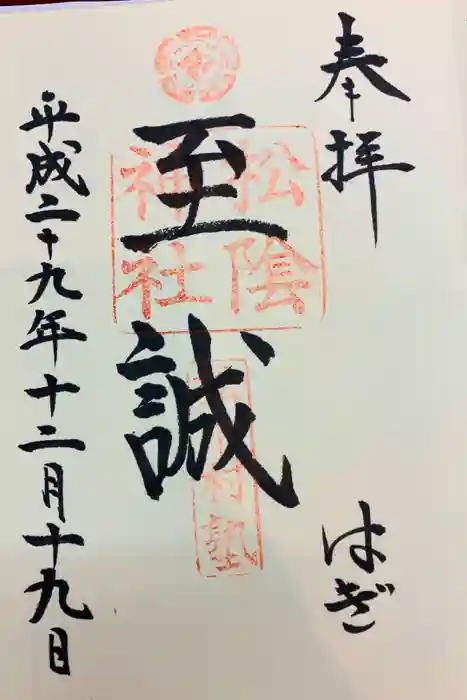 奉拝
はぎ
至誠
松陰
神社
村塾
平成二十九年十二月十九日